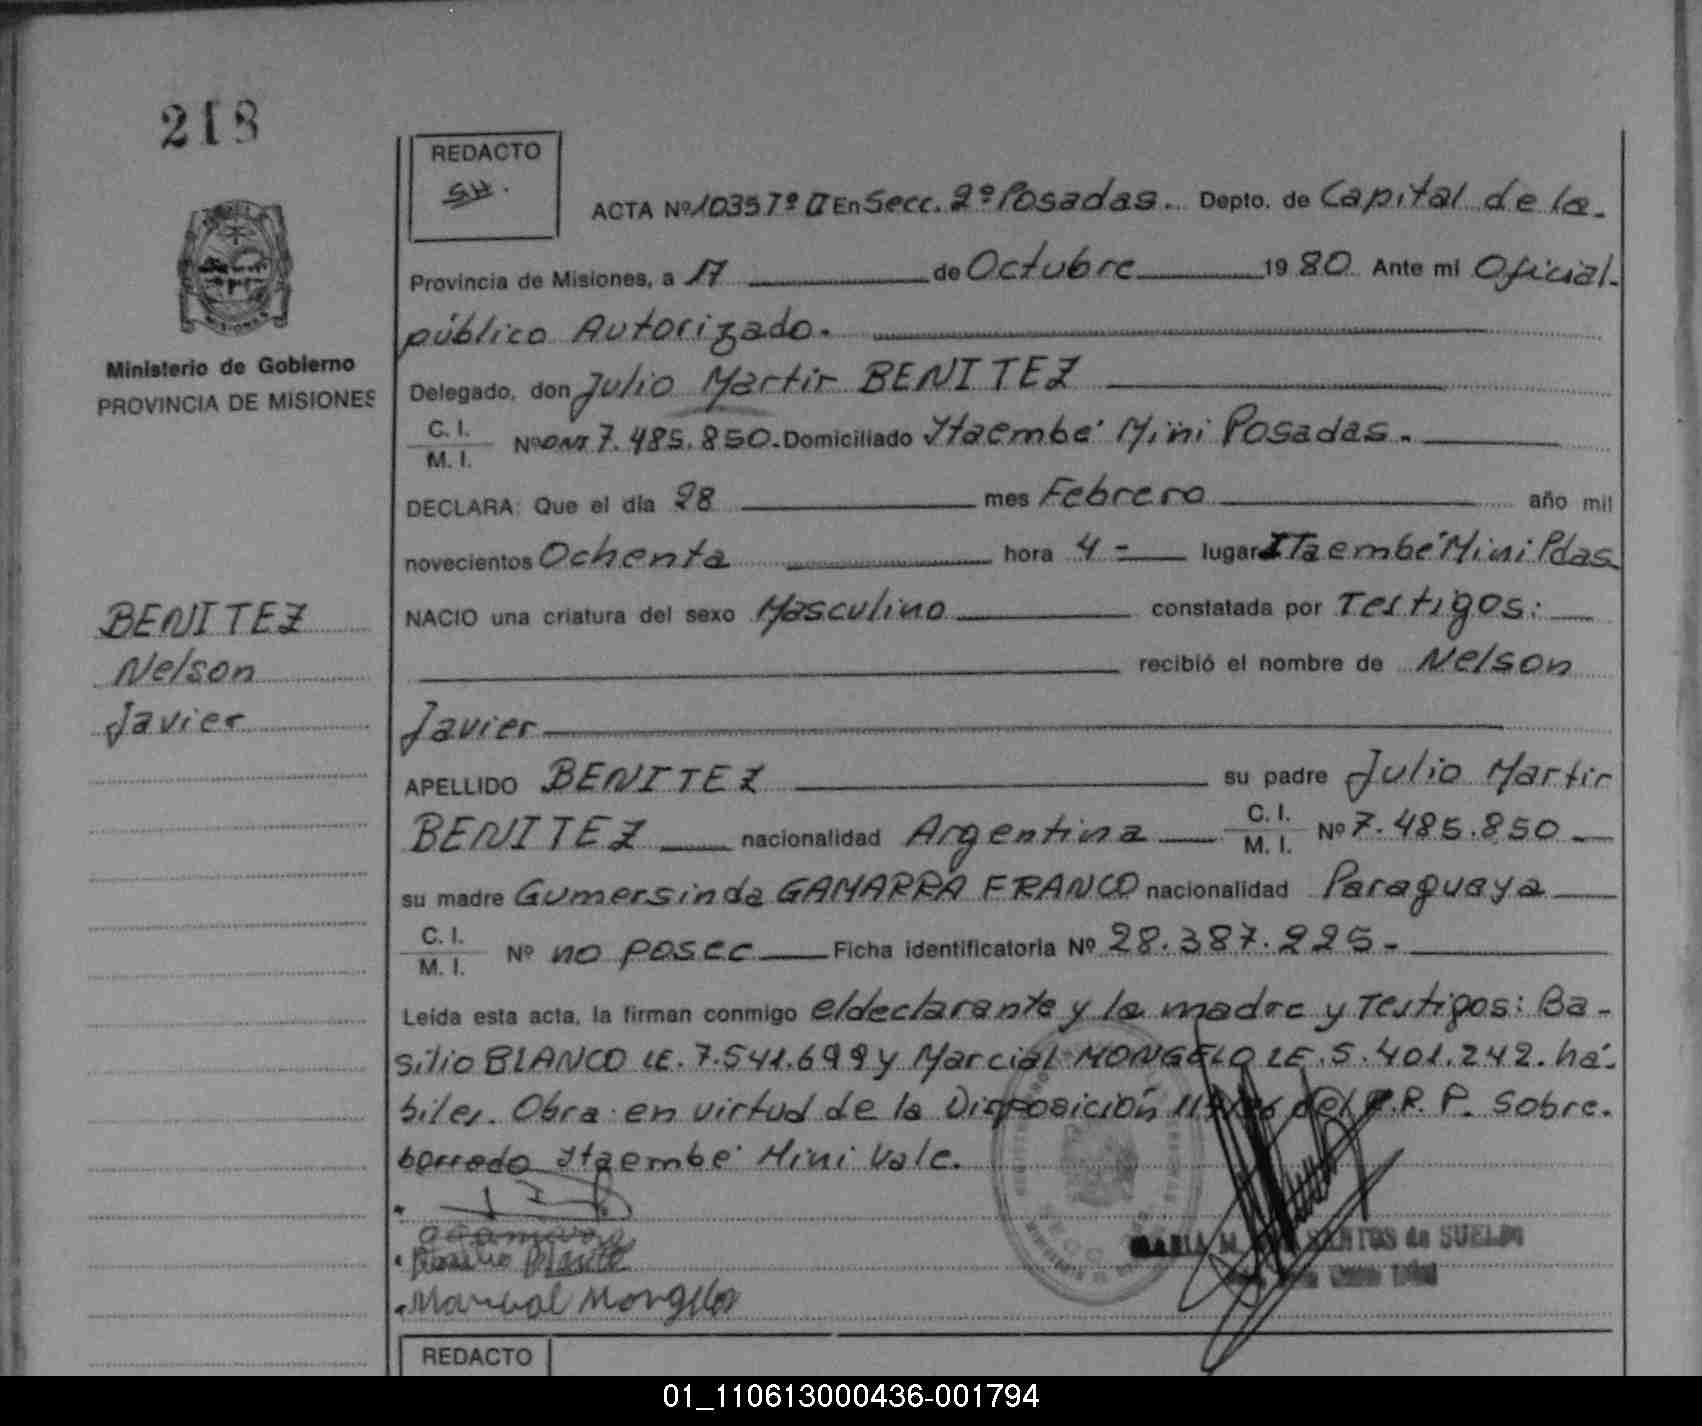 218
REDACTO
SH.
ACTA Nº 1035 Tº II En Secc. 2º Posadas. Depto. de Capital de la.
MISIONES
Provincia de Misiones, a 17 de Octubre 1980 Ante mi Oficial.
público Autorizado.
Ministerio de Gobierno
PROVINCIA DE MISIONES
Delegado, don Julio Martir BENITEZ
C. I.
M. I.
Nº DNI 7.485.850. Domiciliado Itaembé Mini Posadas.
DECLARA: Que el día 28 mes Febrero año mil
novecientos Ochenta hora 4 - lugar Itaembé Mini Pdas
BENITEZ
Nelson
Javier
NACIO una criatura del sexo Masculino constatada por Testigos:
recibió el nombre de Nelson
Javier
APELLIDO BENITEZ su padre Julio Martir
BENITEZ nacionalidad Argentina C. I. M. I. Nº 7.485.850
su madre Gumersinda GAMARRA FRANCO nacionalidad Paraguaya
C. I.
M. I.
Nº no posee Ficha identificatoria Nº 28.387.225.-
Leída esta acta, la firman conmigo el declarante y la madre y Testigos: Ba-
silio BLANCO LE. 7.541.699 y Marcial MONGELO LE. 5.401.242. há-
biles. Obra en virtud de la Disposición del R. P. Sobre.
borrado Itaembé Mini Vale.
Basilio Blanco
Marcial Mongelos
MARIA M. SANTOS de SUELDO
REDACTO
01_110613000436-001794